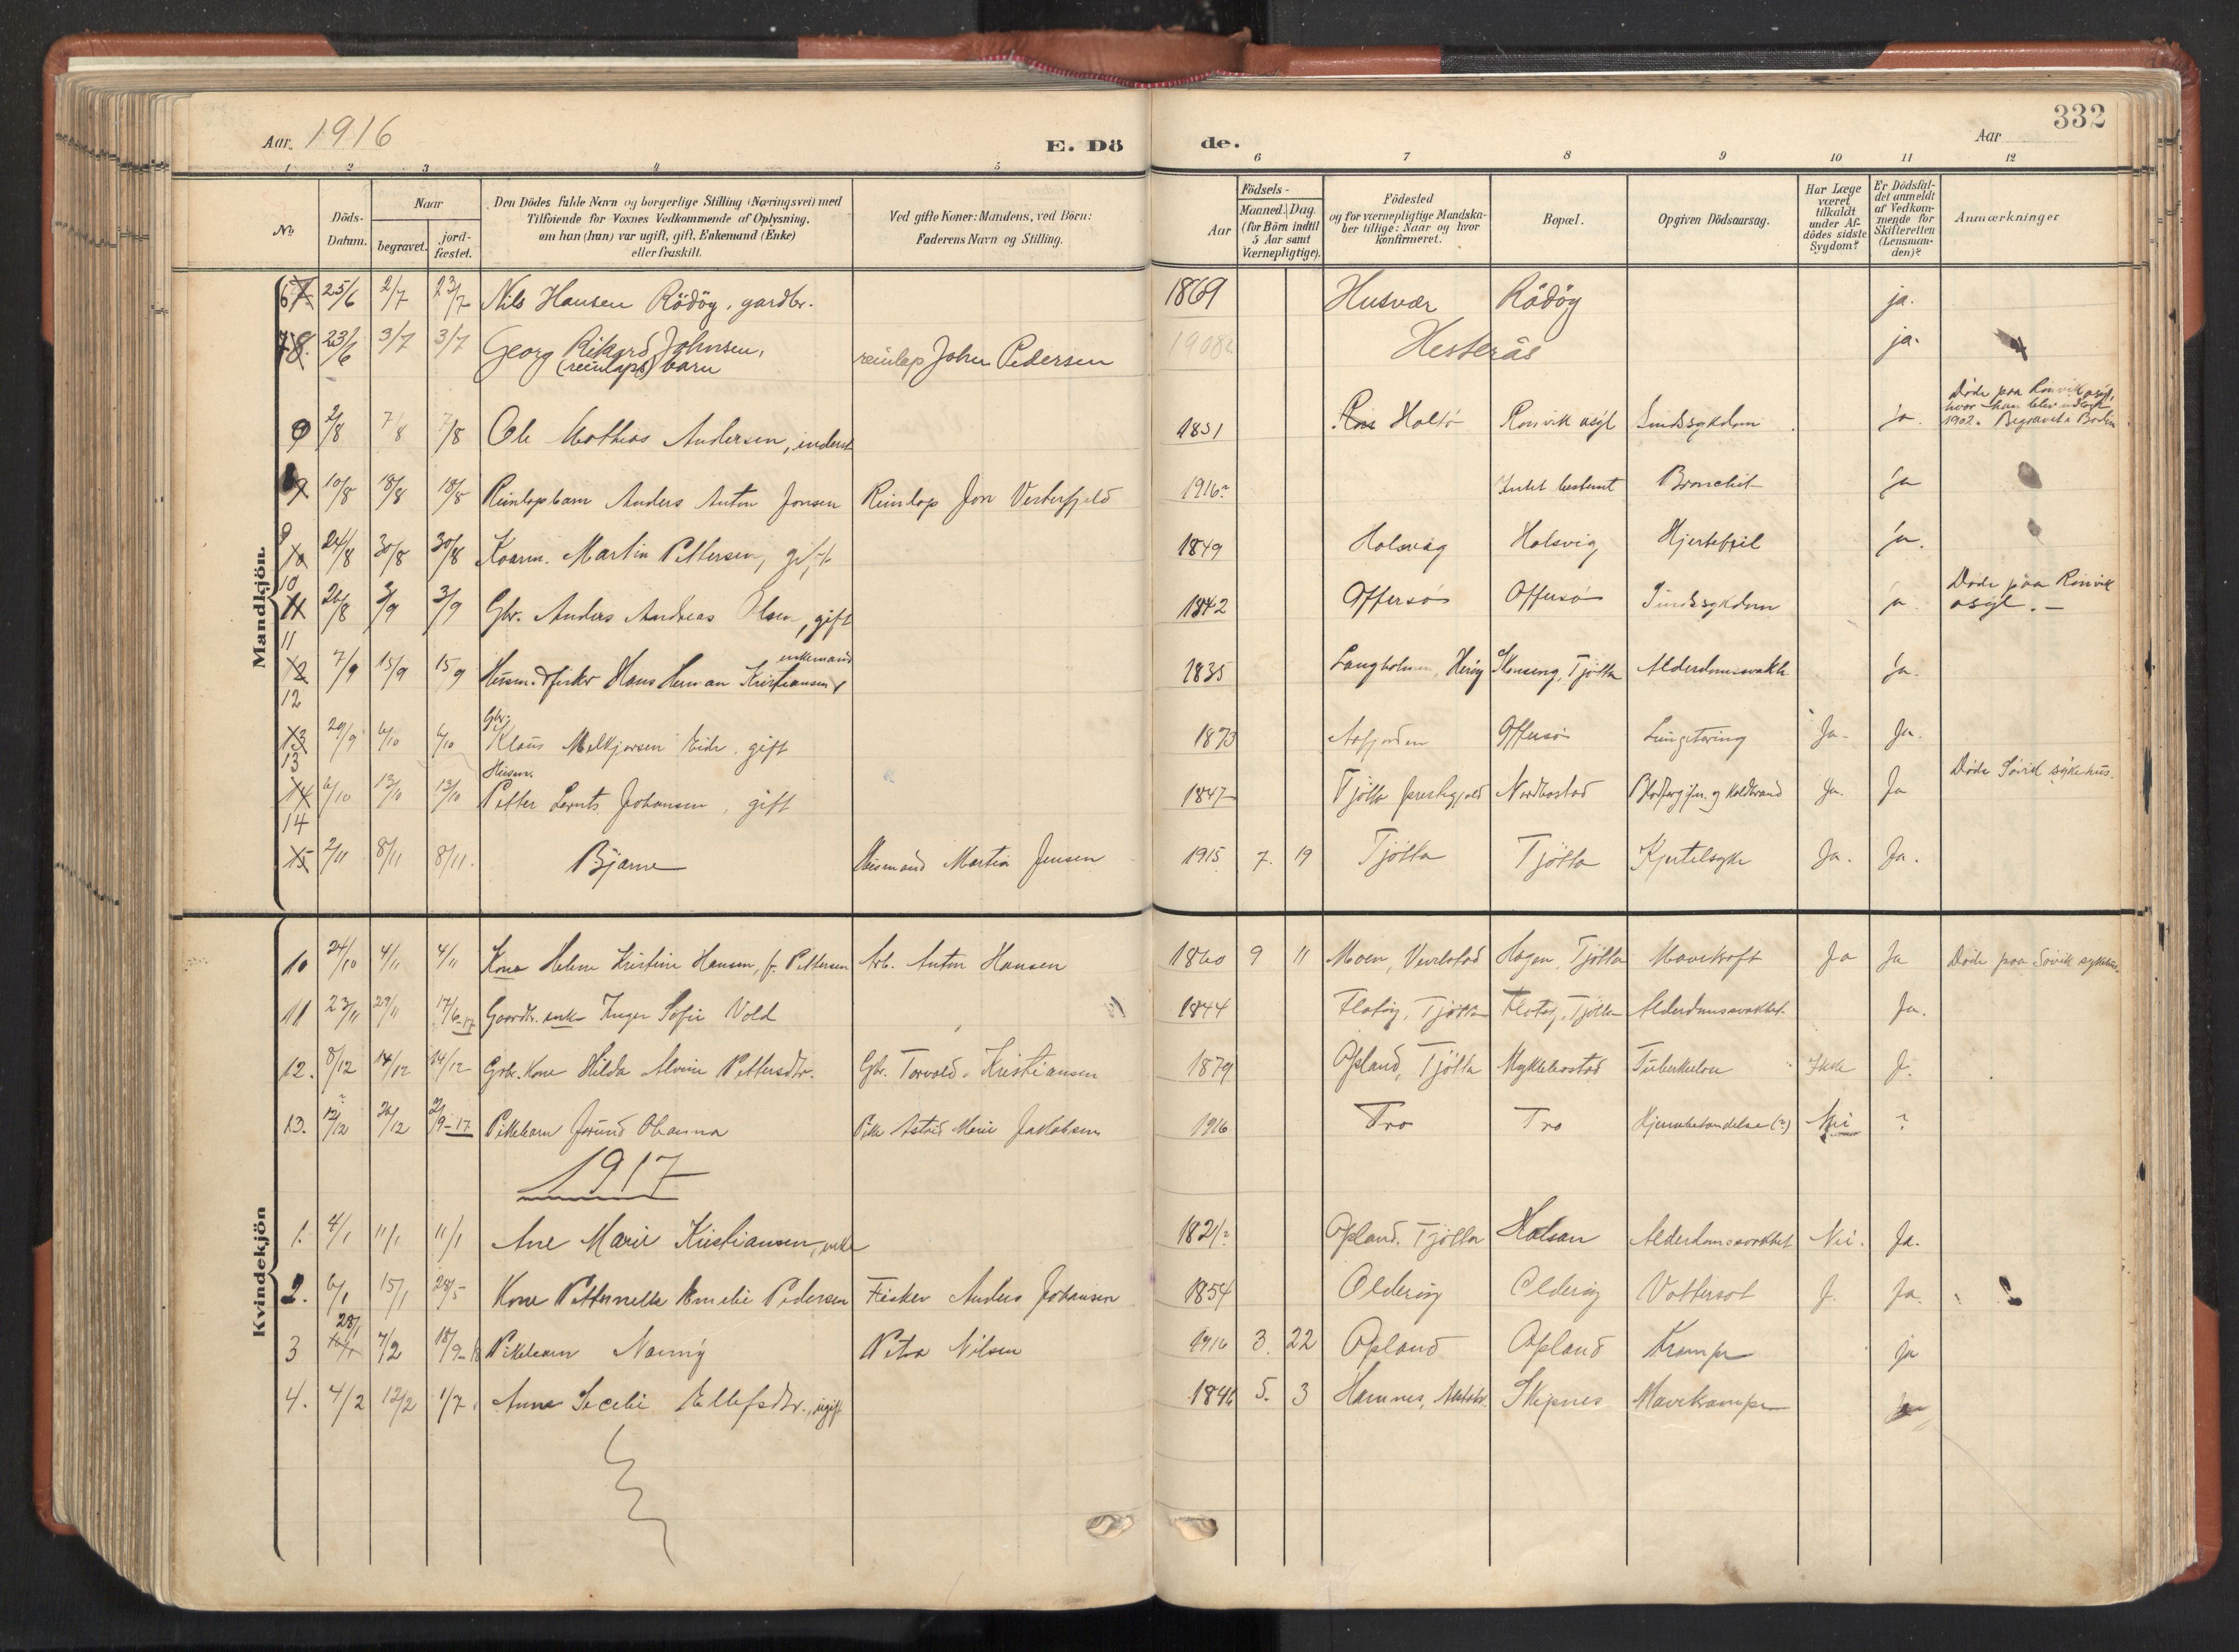 332
Aar 1916 E. Dö de. Aar
1 2 3 4 5 6 7 8 9 10 11 12
No
Döds-Datum.
Naar
begravet.
jord-fæstet.
Den Dödes fulde Navn og borgerlige Stilling (Næringsvei) med
Tilföiende for Voxnes Vedkommende af Oplysning,
om han (hun) var ugift, gift, Enkemand (Enke)
eller fraskilt.
Ved gifte Koner: Mandens, ved Börn:
Faderens Navn og Stilling.
Födsels-
Aar
Maaned. Dag
(for Börn indtil
5 Aar samt
Værnepligtige).
Födested
og for værnepligtige Mandska-
ber tillige: Naar og hvor
konfirmeret.
Bopæl.
Opgiven Dödsaarsag.
Har Læge
været
tilkaldt
under Af-
dödes sidste
Sygdom?
Er Dödsfal-
det anmeldt
af Vedkom-
mende for
Skifteretten
(Lensman-
den)?
Anmærkninger
Mandkjön.
6 25/6 2/7 23/7 Nils Hansen Rödöy, gardbr. 1869 Husvær Rödöy ja.
7 23/6 3/7 3/7 Georg Rikard Johnsen, (reinlaps) barn reinlap John Pedersen 1908 Hesteräs ja.
2/8 7/8 7/8 Ole Mathias Andersen, inderst 1831 Holtö Ronvik asyl Sindssygdom ja. Döde paa Ronvik asyl, hvor han blev indlagt 1902. Begravet i Bodin
10/8 18/8 18/8 Reinlapbarn Anders Anton Jonsen Reinlap Jon Vesterfjeld 1916? Intet bestemt Bronchit ja
9 24/8 30/8 30/8 Kaarm. Martin Pettersen, gift 1849 Holsvåg Holsvig Hjertefeil ja.
10 26/8 3/9 3/9 Gbr. Anders Andreas Olsen, gift 1842 Offersö Offersö Sindssygdom ja Döde paa Ronvik asyl. —
11 7/9 15/9 15/9 Husm. & fisker Hans Herman Kristiansen enkemand 1835 Langholmen, Heröy Tjötta Alderdomssvakh. ja.
12 29/9 6/10 6/10 Gbr. Klaus Melkjorsen Eide, gift 1873 Offersö Lungetæring Ja. Ja.
13 6/10 13/10 13/10 Husm. Petter Lornts Johansen, gift 1847 Tjötta prestegjeld Nordbostad Blodforgiftn. og koldbrand Ja. Ja Döde Sövik sykehus.
14 2/11 8/11 8/11. Bjarne Husmand Martin Jensen 1915 7. 19 Tjötta Tjötta Kjertelsyke Ja. Ja.
Kvindekjön
10 24/10 4/11 4/11 Kone Helene Kristine Hansen, f. Pettersen Arb. Anton Hansen 1860 9 11 Moen, Vevelstad Hagen, Tjötta Mavekræft Ja Ja Döde paa Sövik sykehus.
11 23/11 29/11 17/6-17 Gaardbr. enke Inger Sofie Vold 1844 Flotöy, Tjötta Flotöy, Tjötta Alderdomssvakhet Ja.
12. 8/12 14/12 14/12 Grbr. Kone Hilda Alvine Pettersdtr. Gbr. Torvald Kristiansen 1879 Opland, Tjötta Mykkebostad Tuberkulose Ikke J.
13. 12/12 26/12 2/9-17 Pikebarn Jorund Ohanna Pike Astrid Marie Jakobsen 1916 Tro Tro Hjernebetændelse (?) Nei ?
1917
1. 4/1 11/1 11/1 Ane Marie Kristiansen, enke 1821? Opland, Tjötta Holsan Alderdomssvakhet Nei. Ja.
2. 6/1 15/1 28/5 Kone Petternelle Emelie Pedersen Fisker Anders Johansen 1854 Alderöy Alderöy Vattersot J. Ja.
3 28/1 7/2 18/9-18 Pikebarn Nanny Petra Nilsen 1916 3. 22 Opland Opland Krampe ja
4. 4/2 12/2 1/7. Anna Secelie Ellefsdtr., ugift 1846 5. 3 Hamnes, Skipnes Mavekrampe ja